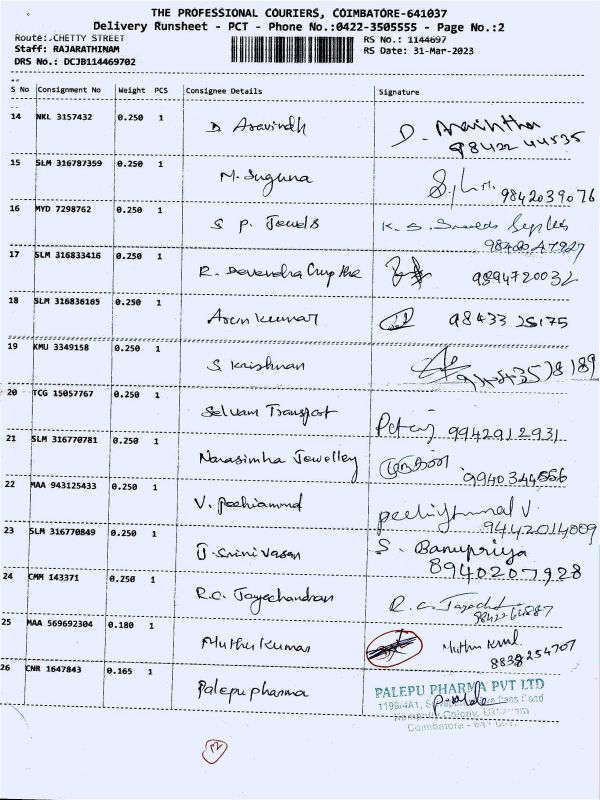 THE PROFESSIONAL COURIERS, COIMBATORE-641037
Delivery Runsheet - PCT - Phone No.:0422-3505555 - Page No.:2
Route: CHETTY STREET
Staff: RAJARATHINAM
DRS No.: DCJB114469702
RS No.: 1144697
RS Date: 31-Mar-2023
S No Consignment No Weight PCS Consignee Details Signature
14 NKL 3157432 0.250 1 D Aravindh D.
98422 44535
15 SLM 316787359 0.250 1 M. Suguna 9842039076
16 MYD 7298762 0.250 1 S P. Jewels K. S.
17 SLM 316833416 0.250 1 R. Devendra Guptha 9894720032
18 SLM 316836169 0.250 1 Arun kumar 98433 25175
19 KMU 3349158 0.250 1 S. Krishnan
20 TCG 15057767 0.250 1 Selvam Transport 9942912931
21 SLM 316770781 0.250 1 Narasimha Jewelley 9940344556
22 MAA 943125433 0.250 1 V. Pechiammal V.
9442014009
23 SLM 316770849 0.250 1 J. Srinivasan S. Banupriya
8940207928
24 CMM 143371 0.250 1 R.C. Jayachandran R. C.
25 MAA 569692304 0.180 1 Muthu Kumar Muthu
8838254707
26 CNR 1647843 0.165 1 Palepu pharma
PALEPU PHARMA PVT LTD
1199/4A1, Road
Colony, Ukkadam
Coimbatore - 641
12